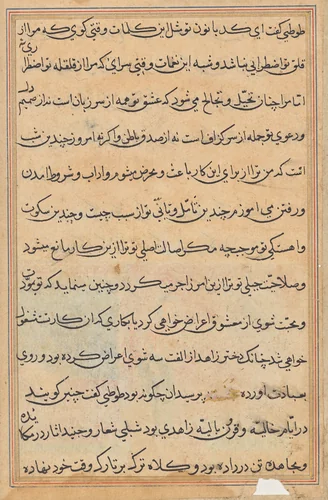 طوطی گفت ای کدبانو نوشل این کلمات وقتی گوی که مرا از
قلق تو اضطرابی نباشد و شبه این نغمات وقتی سرای که مرا از قلقله تو اضطراری
اما مرا چنان تخیل و تخالج می شود که عشق تو همه از سر زبان است نه از صمیم دل
و دعوی تو جمله از سر گزاف است نه از صدق باطن و اگر نه امروز چندین شب
است که من ترا از برای این کار باعث و محرض میشوم و آداب و شروط آمدن
و رفتن می آموزم چندین تأمل و تأنی تو از سبب چیست و چندین سکون
و آهستگی تو موجب چه مگر اصالت اصلی تو ترا ازین کار مانع میشود
و صلاحیت جبلی تو ترا ازین امر زاجر میگردد و چنین مینماید که تو بوقت
و محبت شوی از معشوق اعراض خواهی کرد یا بکاری که از آن کارت مشغول
خواهی شد چنانکه دختر زاهد از الفت سه شوی اعراض کرده بود و روی
بعبادت آورده پرسید آن چگونه بود طوطی گفت چنین گویند
در ایام خالیه و قرون بالیه زاهدی بود شبلی شعار و جنید آثار در مکایده
و مجاهدت تن در داده بود و کلاه ترک بر تارک وقت خود نهاده